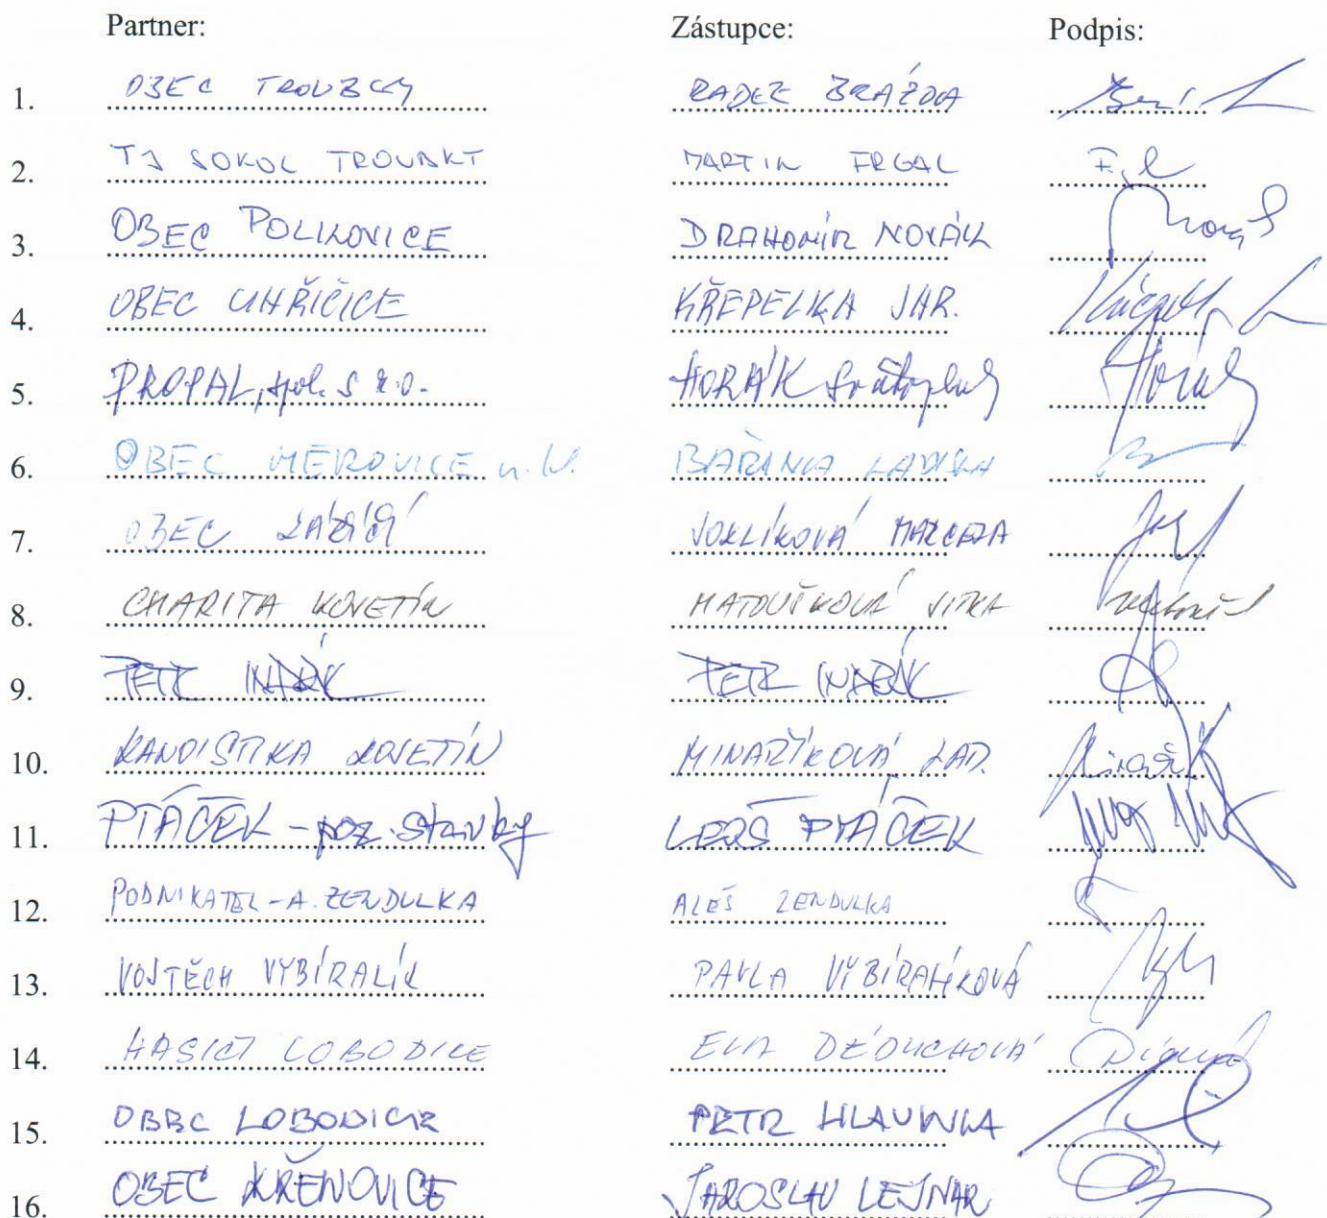 Partner: Zástupce: Podpis:
1. OBEC TROUBKY RADEK BRÁZDA
2. TJ SOKOL MARTIN FRGAL
3. OBEC POLKOVICE DRAHOMÍR NOVÁK
4. OBEC UHŘIČICE KŘEPELKA JAR.
5. PROPAL, spol. s r.o. HORÁK Svatopluk
6. OBEC MĚROVICE n. H. LADISLAV
7. OBEC MARCELA
8. CHARITA KOJETÍN MATOUŠKOVÁ JITKA
9. PETR PETR
10. KANOISTIKA KOJETÍN MINAŘÍKOVÁ LAD.
11. PTÁČEK - poz. stavby LEOŠ PTÁČEK
12. PODNIKATEL - A. ZENDULKA ALEŠ ZENDULKA
13. VOJTĚCH VYBÍRALÍK PAVLA VYBÍRALÍKOVÁ
14. HASIČI LOBODICE EVA
15. OBEC LOBODICE PETR HLAVINKA
16. OBEC KŘENOVICE JAROSLAV LEJNAR